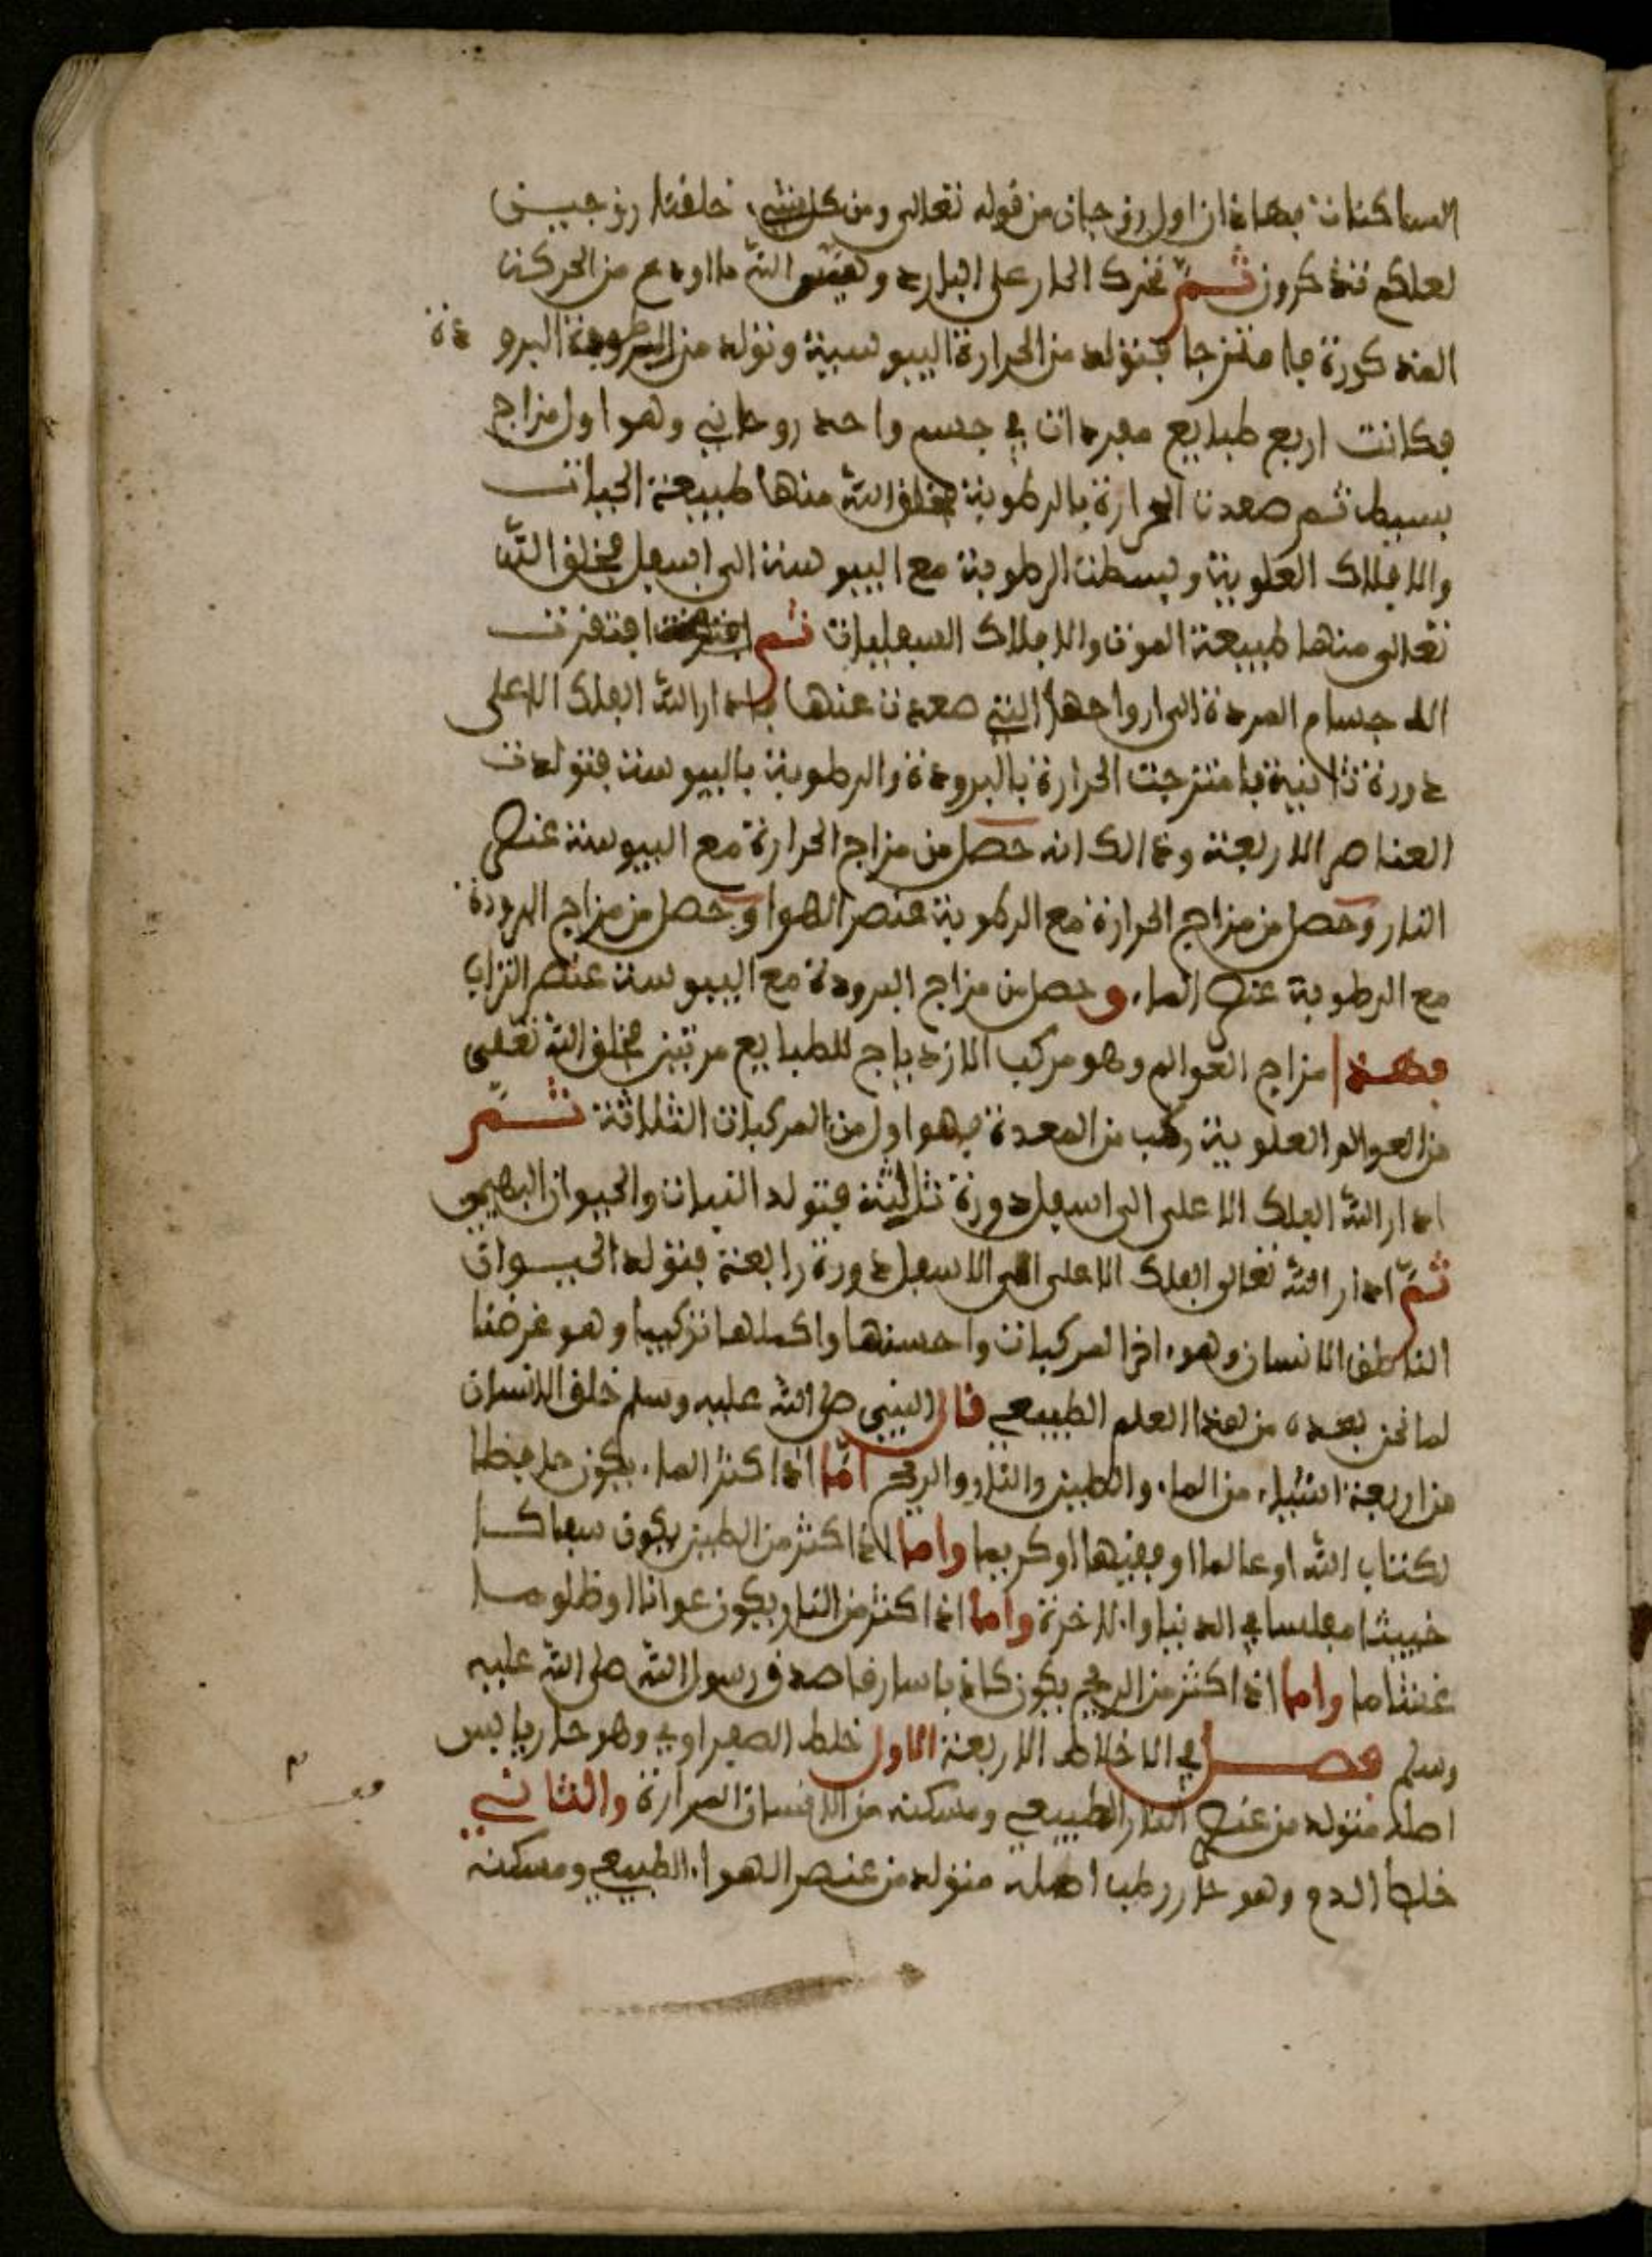 الساكنات فهاذان اول زوجان من قوله تعالى ومن كل شيء خلقنا زوجيين
لعلكم تذكرون ثم تحرك الحار على البارد وهيو الله ما اودع من الحركة
المذكورة فامتزجا فتولد من الحرارة اليبوسية وتولد من الرطوبة البرودة
فكانت اربع طبايع مفردات في جسم واحد روحاني وهو اول مزاج
بسيط ثم صعدت الحرارة بالرطوبة فخلق الله منها طبيعة الحيات
والافلاك العلوية وبسطت الرطوبة مع اليبوسة الى اسفل فخلق الله
تعالى منها طبيعة الموت والافلاك السفليات ثم افتقرت
الاجسام المردة الى ارواحها التي صعدت عنها فادار الله الفلك الاعلى
دورة ثانية فامتزجت الحرارة بالبرودة والرطوبة باليبوسة فتولدت
العناصر الاربعة وذالك انه حصل من مزاج الحرارة مع اليبوسة عنصر
النار وحصل من مزاج الحرارة مع الرطوبة عنصر الهوا وحصل من مزاج البرودة
مع الرطوبة عنصر الماء وحصل من مزاج البرودة مع اليبوسة عنصر التراب
فهذا مزاج العوالم وهو مركب الازدياج للطبايع مرتين فخلق الله تعلى
من العوالم العلوية ركب من المعدة فهو اول من المركبات الثلاثة ثم
ادار الله الفلك الاعلى الى اسفل دورة ثالثة فتولد النبات والحيوان البهيمي
ثم ادار الله تعالى الفلك الاعلى الى الاسفل دورة رابعة فتولد الحيوان
الناطق الانسان وهو اخر المركبات واحسنها واكملها تركيبا وهو غرضنا
لما نحن بصدده من هذا العلم الطبيعي قال النبي صلى الله عليه وسلم خلق الانسان
من اربعة اشياء من الماء والطين والنار والريح اما اذا كثر الماء يكون حافظا
لكتاب الله او عالما او فقيها او كريما واما اذا كثر من الطين يكون سفاكا
خبيثا مفلسا في الدنيا والاخرة واما اذا كثر من النار يكون عوانا او ظلوما
غشاما واما اذا كثر من الريح يكون كاذبا سارقا صدق رسول الله صلى الله عليه
وسلم فصل في الاخلاط الاربعة الاول خلط الصفراوي وهو حار يابس
اصله متولد من عنصر النار الطبيعي ومسكنه من الانسان المرارة والثاني
خلط الدم وهو حار رطب اصله متولد من عنصر الهواء الطبيعي ومسكنه